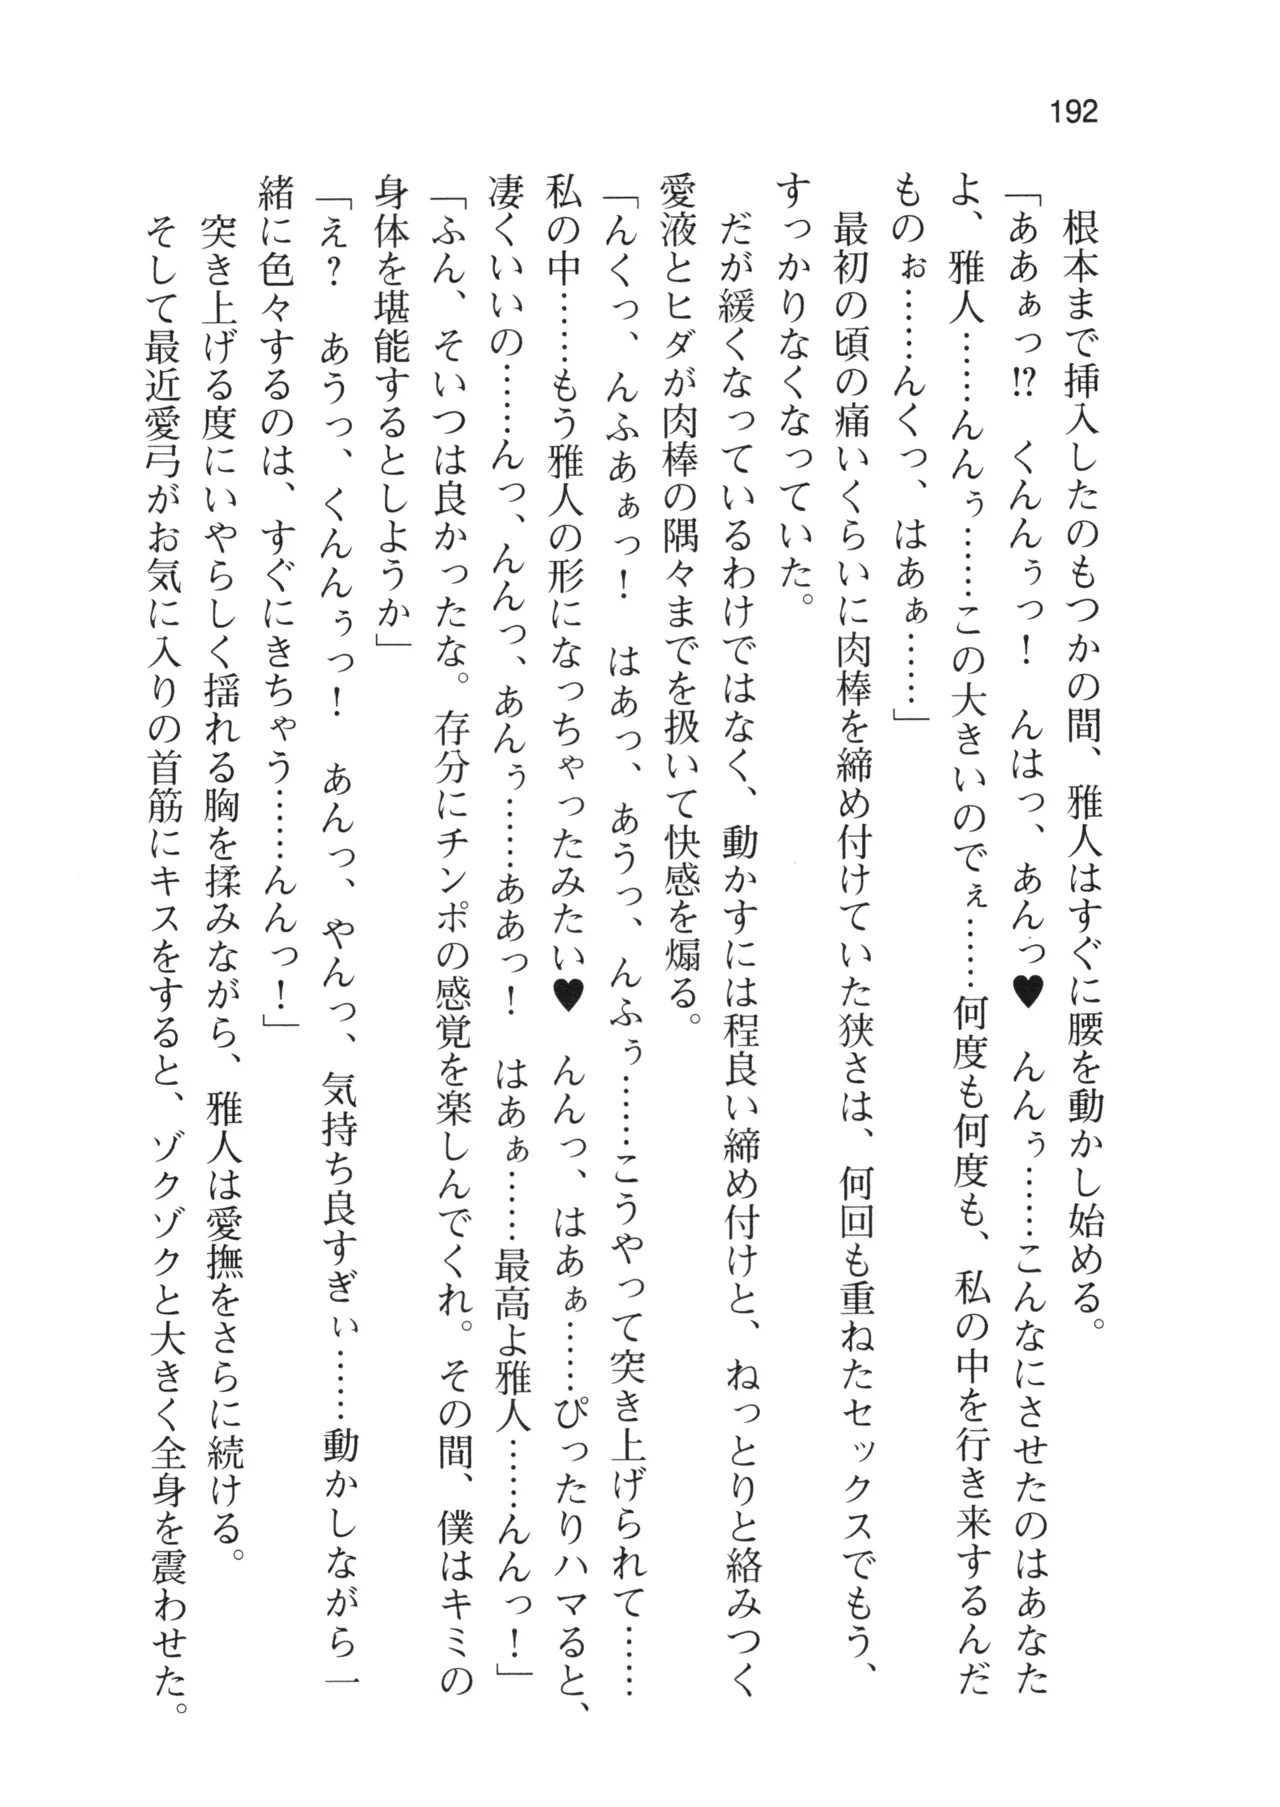 192
根本まで挿入したのもつかの間、雅人はすぐに腰を動かし始める。
「ああぁっ!?　くんんぅっ！　んはっ、あんっ♥　んんぅ……こんなにさせたのはあなた
よ、雅人……んんぅ……この大きいのでぇ……何度も何度も、私の中を行き来するんだ
ものぉ……んくっ、はあぁ……」
最初の頃の痛いくらいに肉棒を締め付けていた狭さは、何回も重ねたセックスでもう、
すっかりなくなっていた。
だが緩くなっているわけではなく、動かすには程良い締め付けと、ねっとりと絡みつく
愛液とヒダが肉棒の隅々までを扱いて快感を煽る。
「んくっ、んふあぁっ！　はあっ、あうっ、んふぅ……こうやって突き上げられて……
私の中……もう雅人の形になっちゃったみたい♥　んんっ、はあぁ……ぴったりハマると、
凄くいいの……んっ、んんっ、あんぅ……ああっ！　はあぁ……最高よ雅人……んんっ！」
「ふん、そいつは良かったな。存分にチンポの感覚を楽しんでくれ。その間、僕はキミの
身体を堪能するとしようか」
「え？　あうっ、くんんぅっ！　あんっ、やんっ、気持ち良すぎぃ……動かしながら一
緒に色々するのは、すぐにきちゃう……んんっ！」
突き上げる度にいやらしく揺れる胸を揉みながら、雅人は愛撫をさらに続ける。
そして最近愛弓がお気に入りの首筋にキスをすると、ゾクゾクと大きく全身を震わせた。